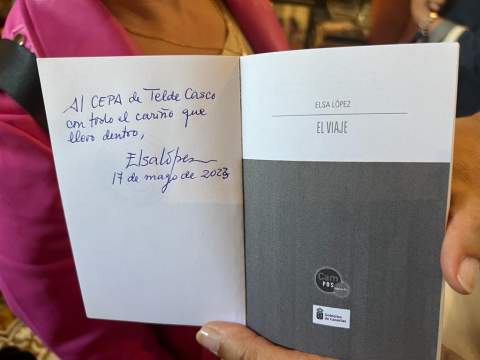 Al CEPA de Telde Casco
con todo el cariño que
llevo dentro,
Elsa López
17 de mayo de 2023
ELSA LÓPEZ
EL VIAJE
Cam
PDS
Gobierno
de Canarias